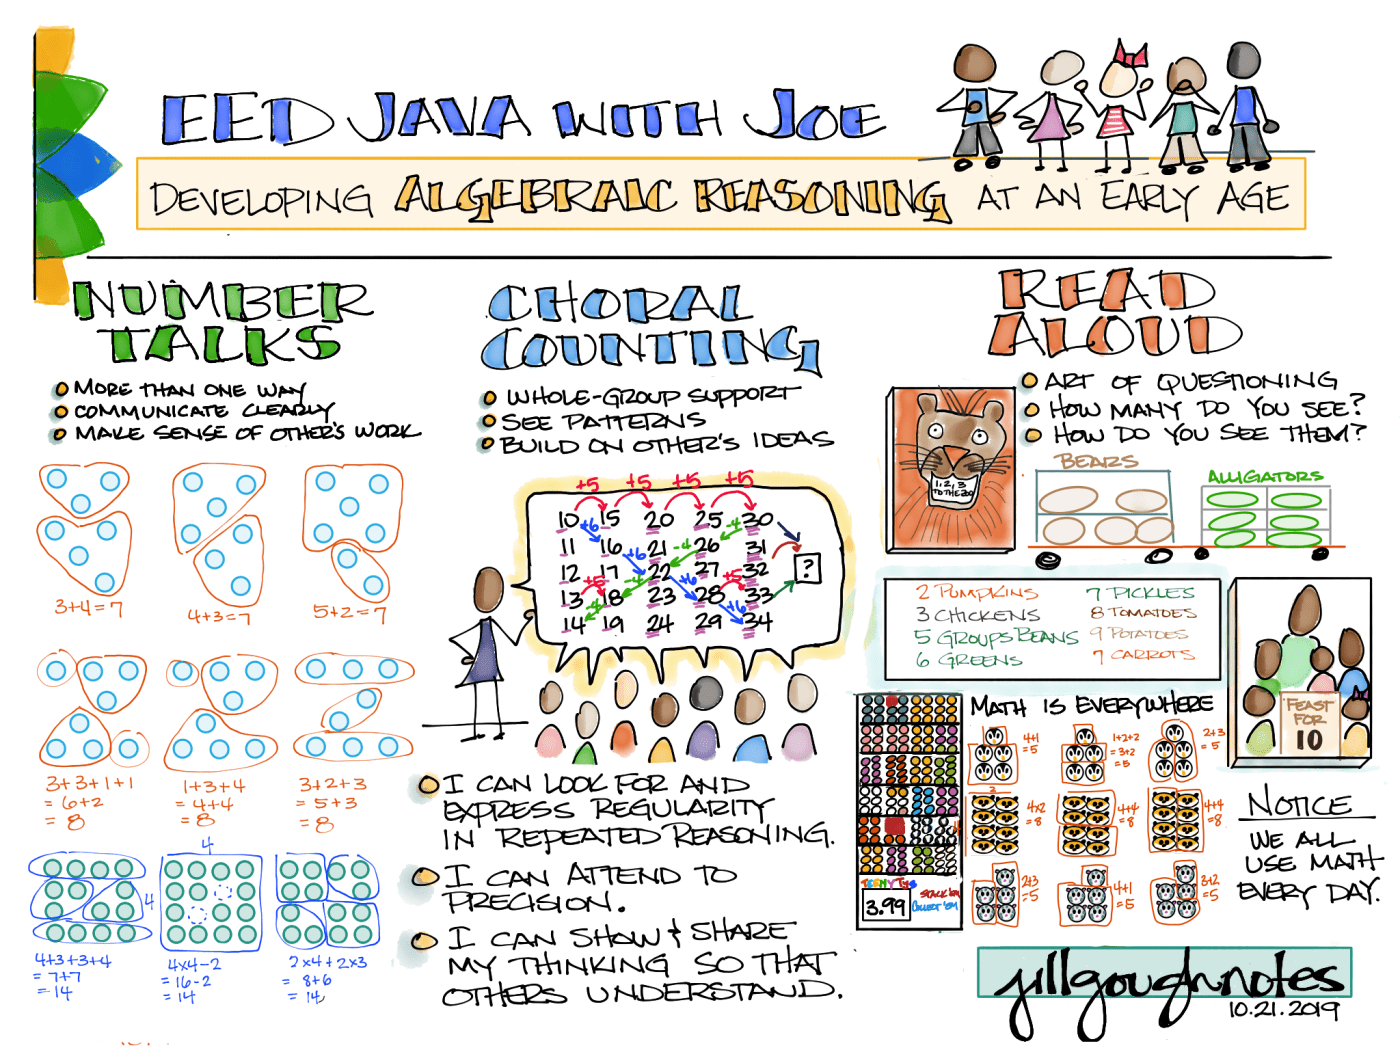 EED JAVA WITH JOE
DEVELOPING ALGEBRAIC REASONING AT AN EARLY AGE
NUMBER
TALKS
MORE THAN ONE WAY
COMMUNICATE CLEARLY
MAKE SENSE OF OTHER'S WORK
3+4=7
4+3=7
5+2=7
3+3+1+1
= 6+2
= 8
1+3+4
= 4+4
= 8
3+2+3
= 5+3
= 8
4
4
4+3+3+4
= 7+7
= 14
4x4-2
= 16-2
= 14
2x4+2x3
= 8+6
= 14
CHORAL
COUNTING
WHOLE-GROUP SUPPORT
SEE PATTERNS
BUILD ON OTHER'S IDEAS
+5 +5 +5 +5
10 15 20 25 30
+6 -4
11 16 21 26 31
+6 -4
12 17 22 27 32
?
+5 -4 +6 +5
13 18 23 28 33
-4 +6
14 19 24 29 34
I CAN LOOK FOR AND
EXPRESS REGULARITY
IN REPEATED REASONING.
I CAN ATTEND TO
PRECISION.
I CAN SHOW & SHARE
MY THINKING SO THAT
OTHERS UNDERSTAND.
READ
ALOUD
ART OF QUESTIONING
HOW MANY DO YOU SEE?
HOW DO YOU SEE THEM?
1, 2, 3
TO THE ZOO
BEARS
ALLIGATORS
2 PUMPKINS
3 CHICKENS
5 GROUPS BEANS
6 GREENS
7 PICKLES
8 TOMATOES
9 POTATOES
7 CARROTS
FEAST
FOR
10
MATH IS EVERYWHERE
4+1
= 5
1+2+2
= 3+2
= 5
2+3
= 5
4x2
= 8
4+4
= 8
4+4
= 8
2+3
= 5
4+1
= 5
3+2
= 5
TEENY TYS
3.99
STACK 'EM
COLLECT 'EM
NOTICE
WE ALL
USE MATH
EVERY DAY.
jillgoughnotes
10.21.2019